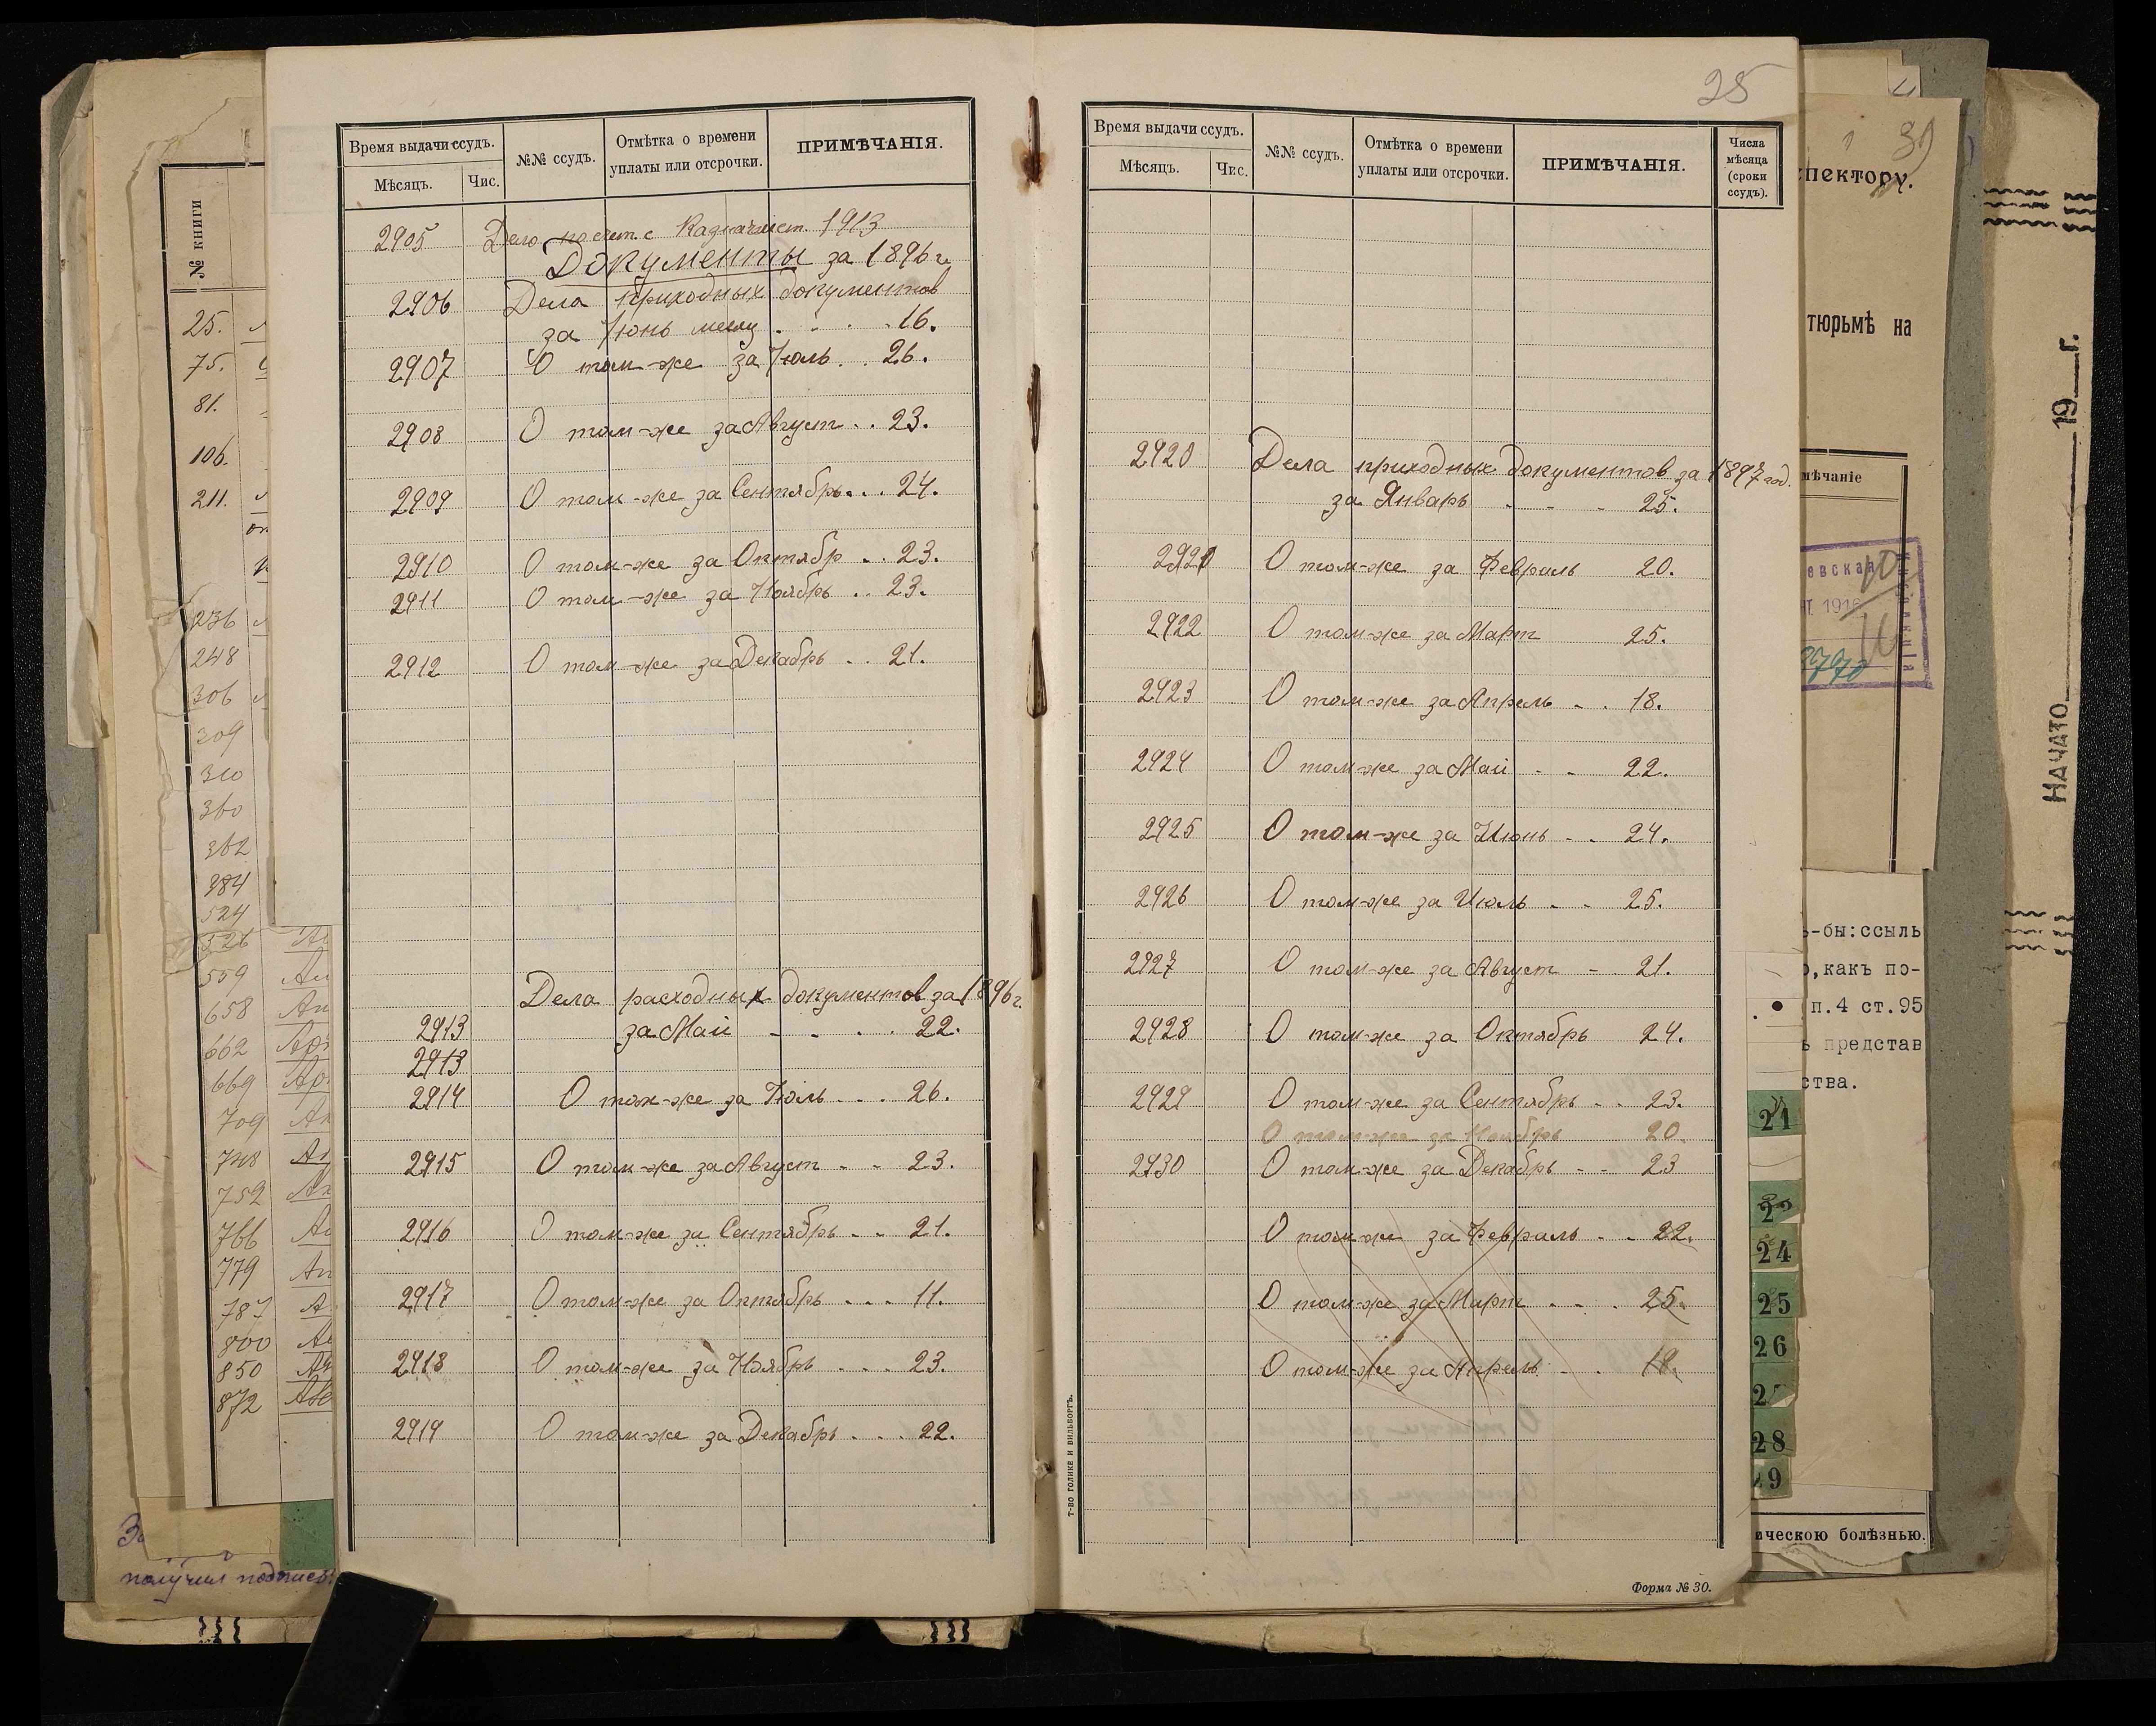 25
Время выдачи ссудъ.
Мѣсяцъ.
Чис.
№№ ссудъ.
Отмѣтка о времени
уплаты или отсрочки.
ПРИМѢЧАНІЯ.
2905 Дело по 1913
Документы за 1896 г.
2906 Дела приходных документов
за Июнь месяц . . . . 16.
2907 О том-же за Июль . . 26.
2908 О том-же за Август . . 23.
2909 О том-же за Сентябрь . . 24.
2910 О том-же за Октябр . . 23.
2911 О том-же за Ноябрь . . 23.
2912 О том-же за Декабрь . . 21.
Дела расходных документов за 1896 г.
2913 за Май - - . . . 22.
2913
2914 О том-же за Июль . . . 26.
2915 О том-же за Август - - 23.
2916 О том-же за Сентябрь . . 21.
2917 О том-же за Октябрь . . . 11.
2918 О том-же за Ноябрь . . . 23.
2919 О том-же за Декабрь . . . 22.
Время выдачи ссудъ.
Мѣсяцъ.
Чис.
№№ ссудъ.
Отмѣтка о времени
уплаты или отсрочки.
ПРИМѢЧАНІЯ.
Числа
мѣсяца
(сроки
ссудъ).
2920 Дела приходных документов за 1897 год.
за Январь - - - 25.
2921 О том-же за Февраль 20.
2922 О том-же за Март 25.
2923 О том-же за Апрель - . 18.
2924 О том-же за Май - - 22.
2925 О том-же за Июнь - - 24.
2926 О том-же за Июль - - 25.
2927 О том-же за Август - 21.
2928 О том-же за Октябрь 24.
2929 О том-же за Сентябрь - - 23.
О том-же за Ноябрь 20.
2930 О том-же за Декабрь - - 23
О том-же за Февраль - - 22.
О том-же за Март - - . 25.
О том-же за Апрель - . 18.
Т-ВО ГОЛИКЕ И ВИЛЬБОРГЪ.
Форма № 30.
№ книги
25.
75.
81.
106.
211.
236
248
306
309
310
360
362
384
524
526
559
658
662
669
709
748
752
766
779
787
800
850
872
получил подпись
спектору.
тюрьмѣ на
мѣчаніе
евская
1916
8770
-бы:ссыль
,какъ по-
п.4 ст.95
представ
ства.
21
22
24
25
26
28
29
ическою болѣзнью.
НАЧАТО 19 г.